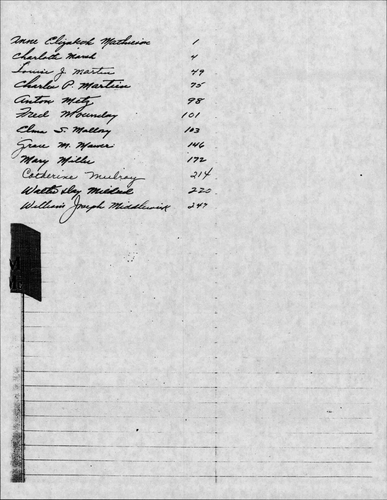 Anne Elizabeth Mathieson 1
Charlotte Marsh 4
Louise J. Martin 49
Charles P. Martein 75
Anton Metz 98
Fred Mounday 101
Clara S. Mallory 103
Grace M. Mawer 146
Mary Miller 172
Catherine Mulroy 214
Walter Day 220
William Joseph Middlewick 247